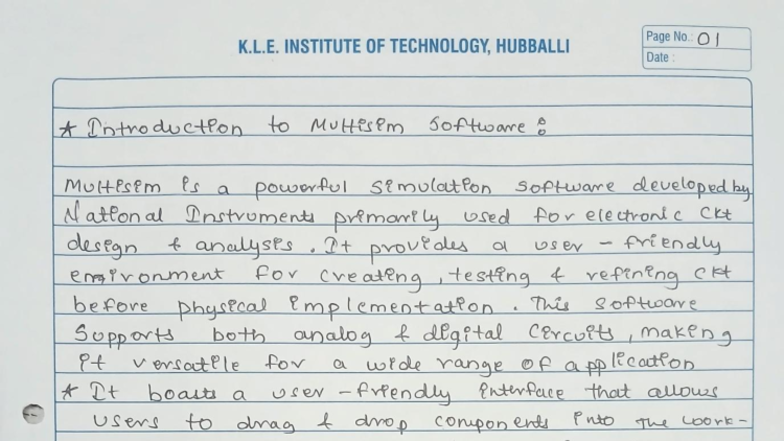 K.L.E. INSTITUTE OF TECHNOLOGY, HUBBALLI
Page No.: 01
Date :
* Introduction to Multisim Software :
Multisim is a powerful simulation software developed by
National Instruments primarily used for electronic ckt
design & analysis. It provides a user - friendly
environment for creating, testing & refining ckt
before physical implementation. This software
supports both analog & digital circuits, making
it versatile for a wide range of application
* It boasts a user - friendly interface that allows
users to drag & drop components into the work-